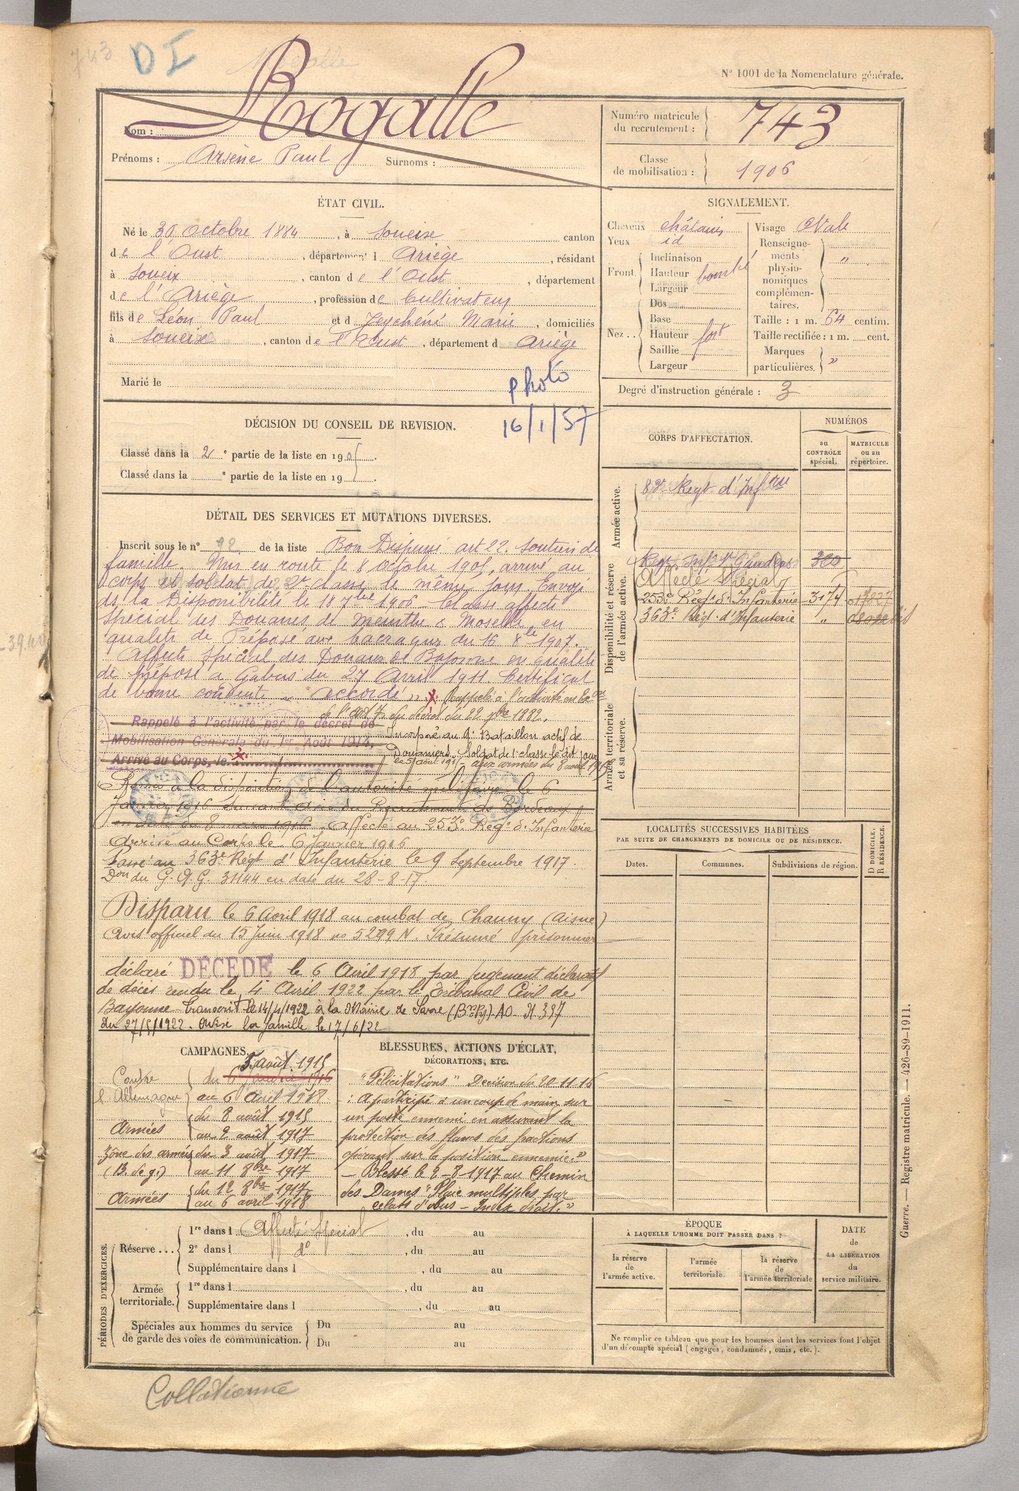 743 DI
N° 1001 de la Nomenclature générale.
Nom : Rogalle
Prénoms : Arsène Paul Surnoms :
Numéro matricule du recrutement : 743
Classe de mobilisation : 1906
ÉTAT CIVIL.
Né le 30 octobre 1884, à Soueix, canton
de l'Oust, département d Ariège, résidant
à Soueix, canton de l'Oust, département
de l'Ariège, profession de Cultivateur
fils de Léon Paul et d Peychéné Marie, domiciliés
à Soueix, canton de l'Oust, département d Ariège
Marié le
photo
16/1/57
SIGNALEMENT.
Cheveux châtains
Yeux id
Front Inclinaison
Hauteur bombé
Largeur
Dos
Nez Base
Hauteur fort
Saillie
Largeur
Visage Ovale
Renseignements physionomiques complémentaires. "
Taille : 1 m. 64 centim.
Taille rectifiée : 1 m. cent.
Marques particulières. "
Degré d'instruction générale : 3
DÉCISION DU CONSEIL DE REVISION.
Classé dans la 2e partie de la liste en 1905.
Classé dans la e partie de la liste en 19 .
CORPS D'AFFECTATION.
NUMÉROS
au CONTRÔLE spécial.
MATRICULE ou au répertoire.
Armée active.
Regt d'Infrie
Disponibilité et réserve de l'armée active.
Affecté Spécial
253e Régt d'Infanterie 3174 017027
363e Régt d'Infanterie "
Armée territoriale et sa réserve.
DÉTAIL DES SERVICES ET MUTATIONS DIVERSES.
Inscrit sous le n° 92 de la liste Bon Dispensé art 22. Soutien de
famille. Mis en route le 8 octobre 1905, arrivé au
corps et soldat de 2e classe le même jour. Envoyé
ds la Disponibilité le 18 7bre 1906. Classé affecté
Spécial des Douanes de Meurthe & Moselle en
qualité de Préposé du 16 8bre 1907.
Affecté Spécial des Douanes de Bayonne en qualité
de préposé à Gabas du 27 Avril 1911 Certificat
de bonne conduite accordé. Rappelé à l'activité
du décret du 22 9bre 1882.
Rappelé à l'activité par le décret de
Mobilisation Générale du 1er Août 1914.
Arrivé au Corps, le
Incorporé au 4e Bataillon actif de
Douaniers, Soldat de 1e classe le dit jour
le 5 août 1915 aux armées du 8 août 1915
Remis à la disposition de l'autorité militaire le 6
Janvier 1916 suivant avis du Recrutement de Bordeaux
en date du 8 mars 1916. Affecté au 253e Régt d'Infanterie
Arrivé au Corps le 6 janvier 1916
Passé au 363e Régt d'Infanterie le 9 Septembre 1917
Don du G.Q.G. 31144 en date du 28-8-17.
Disparu le 6 Avril 1918 au combat de Chauny (Aisne)
Avis officiel du 15 Juin 1918 no 5299 N. Présumé prisonnier
déclaré DÉCÉDÉ le 6 Avril 1918 par jugement déclaratif
de décès rendu le 4 Avril 1922 par le Tribunal Civil de
Bayonne transcrit le 14/4/1922 à la Mairie de Sare (Bses Py.) AO. N 337
du 27/5/1922. Avisé la famille le 17/6/22
LOCALITÉS SUCCESSIVES HABITÉES
PAR SUITE DE CHANGEMENTS DE DOMICILE OU DE RÉSIDENCE.
Dates. Communes. Subdivisions de région.
D DOMICILE. R RÉSIDENCE.
CAMPAGNES.
5 août 1915
Contre l'Allemagne du 6 janvier 1916
au 6 Avril 1918
Armées du 8 août 1915
au 2 août 1917
Zône des armées du 3 août 1917
(B. de g.) au 11 8bre 1917
Armées du 12 8bre 1917
au 6 avril 1918
BLESSURES, ACTIONS D'ÉCLAT,
DÉCORATIONS, ETC.
"Félicitations" Décision du 20.11.16
: a participé à un coup de main sur
un poste ennemi en assurant la
protection des flancs des fractions
opérant sur la position ennemie."
Blessé le 2-8-1917 au Chemin
des Dames "Plaie multiples par
éclats d'obus - Index droit."
PÉRIODES D'EXERCICES.
Réserve 1re dans l Affecté Spécial, du au
2e dans l do, du au
Supplémentaire dans l , du au
Armée territoriale. 1re dans l , du au
Supplémentaire dans l , du au
Spéciales aux hommes du service de garde des voies de communication. Du au
Du au
ÉPOQUE
À LAQUELLE L'HOMME DOIT PASSER DANS :
la réserve de l'armée active.
l'armée territoriale.
la réserve de l'armée territoriale
DATE de LA LIBÉRATION du service militaire.
Ne remplir ce tableau que pour les hommes dont les services font l'objet
d'un décompte spécial (engagés, condamnés, omis, etc.).
Guerre. — Registre matricule. — 426-89-1911.
Collationné